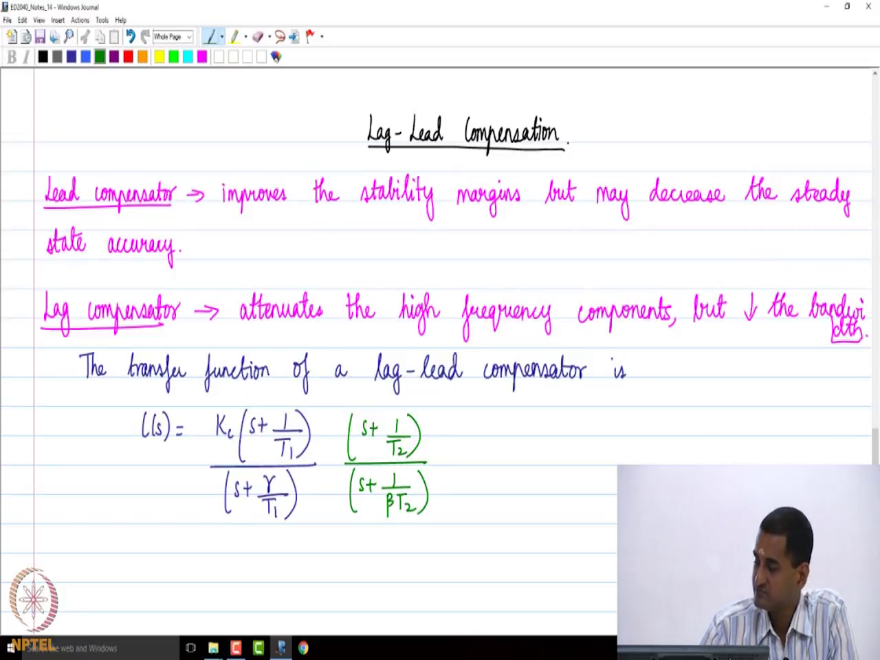 ED2040_Notes_14 - Windows Journal
File Edit View Insert Actions Tools Help
Whole Page
B I
Lag-Lead Compensation.
Lead compensator → improves the stability margins but may decrease the steady
state accuracy.
Lag compensator → attenuates the high frequency components, but ↓ the bandwi
dth.
The transfer function of a lag-lead compensator is
C(s) = Kc (s + 1/T1) / (s + γ/T1) (s + 1/T2) / (s + 1/βT2)
NPTEL
the web and Windows